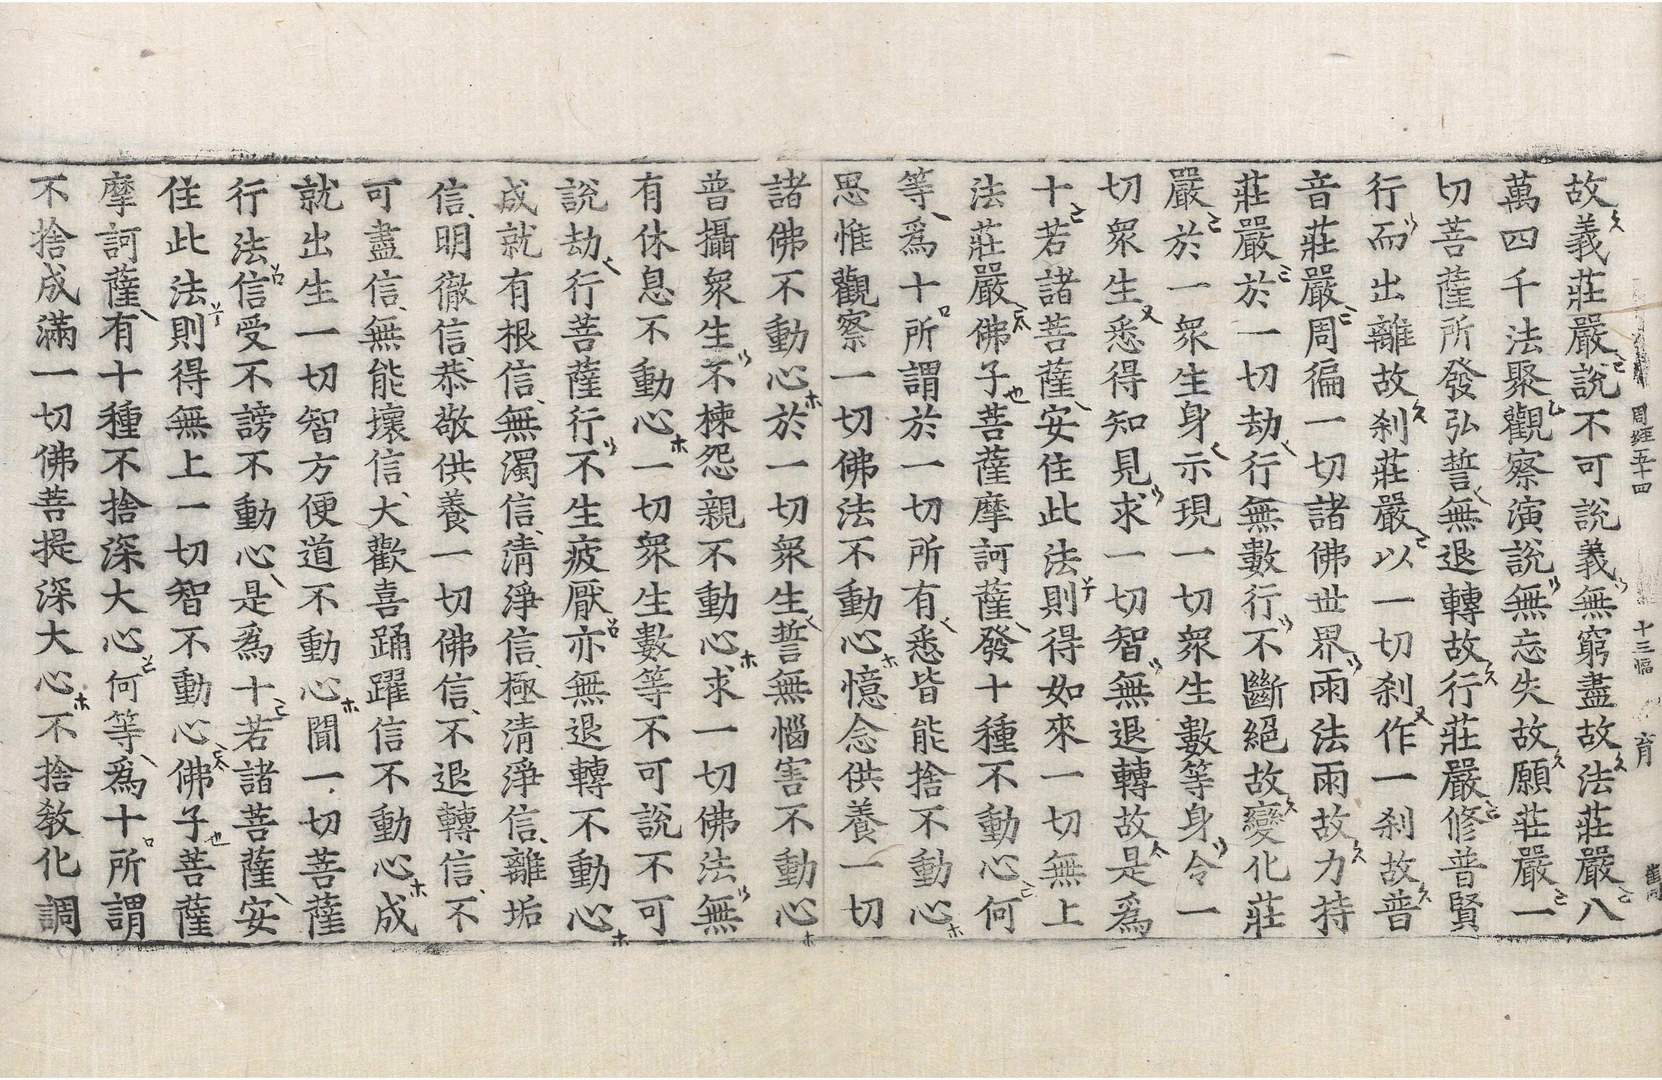 周經五十四 十三幅 育
故義莊嚴說不可說義無窮盡故法莊嚴八
萬四千法聚觀察演說無忘失故願莊嚴一
切菩薩所發弘誓無退轉故行莊嚴修普賢
行而出離故刹莊嚴以一切刹作一刹故普
音莊嚴周徧一切諸佛世界雨法雨故力持
莊嚴於一切劫行無數行不斷絕故變化莊
嚴於一眾生身示現一切眾生數等身令一
切眾生悉得知見求一切智無退轉故是爲
十若諸菩薩安住此法則得如來一切無上
法莊嚴佛子菩薩摩訶薩發十種不動心何
等爲十所謂於一切所有悉皆能捨不動心
思惟觀察一切佛法不動心憶念供養一切
諸佛不動心於一切眾生誓無惱害不動心
普攝眾生不揀怨親不動心求一切佛法無
有休息不動心一切眾生數等不可說不可
說劫行菩薩行不生疲厭亦無退轉不動心
成就有根信無濁信清淨信極清淨信離垢
信明徹信恭敬供養一切佛信不退轉信不
可盡信無能壞信大歡喜踊躍信不動心成
就出生一切智方便道不動心聞一切菩薩
行法信受不謗不動心是爲十若諸菩薩安
住此法則得無上一切智不動心佛子菩薩
摩訶薩有十種不捨深大心何等爲十所謂
不捨成滿一切佛菩提深大心不捨教化調